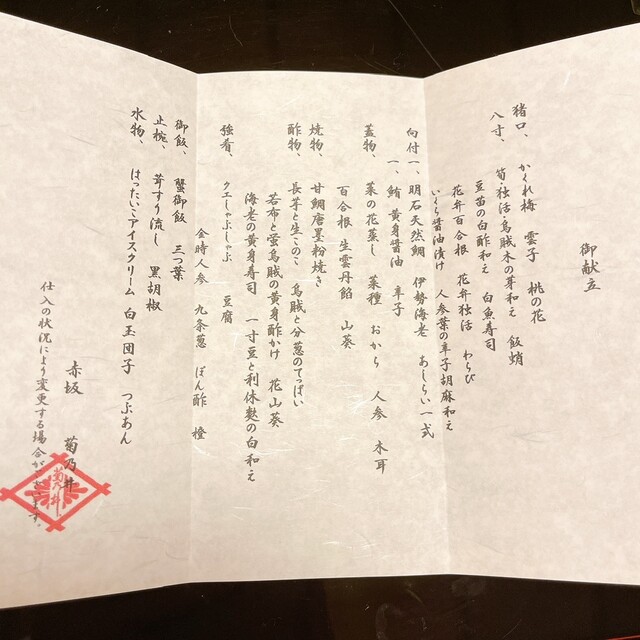 御献立
猪口、 かくれ梅 雲子 桃の花
八寸、 筍・独活・烏賊木の芽和え 飯蛸
豆苗の白酢和え 白魚寿司
花弁百合根 花弁独活 わらび
いくら醤油漬け 人参葉の辛子胡麻和え
向付一、 明石天然鯛 伊勢海老 あしらい一式
一、 鮪 黄身醤油 辛子
蓋物、 菜の花蒸し 菜種 おから 人参 木耳
百合根 生雲丹餡 山葵
焼物、 甘鯛唐墨粉焼き
酢物、 長芋と生このこ 烏賊と分葱のてっぱい
若布と蛍烏賊の黄身酢かけ 花山葵
海老の黄身寿司 一寸豆と利休麩の白和え
強肴、 クエしゃぶしゃぶ 豆腐
金時人参 九条葱 ぽん酢 橙
御飯、 蟹御飯 三つ葉
止椀、 茸すり流し 黒胡椒
水物、 はったいこアイスクリーム 白玉団子 つぶあん
赤坂 菊乃井
仕入の状況により変更する場合がございます。